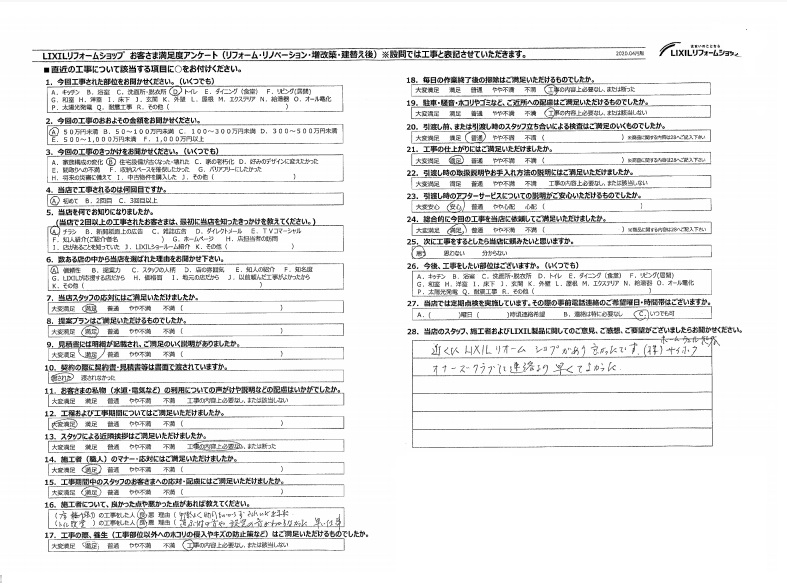 LIXILリフォームショップ お客さま満足度アンケート（リフォーム・リノベーション・増改築・建替え後）※設問では工事と表記させていただきます。
2020.04月期
LIXILリフォームショップ
■ 直近の工事について該当する項目に○をお付けください。
1. 今回工事された部位をお聞かせください。（いくつでも）
A. キッチン B. 浴室 C. 洗面所・脱衣所 D. トイレ E. ダイニング（食堂） F. リビング(居間)
G. 和室 H. 洋室 I. 床下 J. 玄関 K. 外壁 L. 屋根 M. エクステリア N. 給湯器 O. オール電化
P. 太陽光発電 Q. 耐震工事 R. その他（ ）
2. 今回の工事のおおよその金額をお聞かせください。
A. 50万円未満 B. 50～100万円未満 C. 100～300万円未満 D. 300～500万円未満
E. 500～1,000万円未満 F. 1,000万円以上
3. 今回の工事のきっかけをお聞かせください。（いくつでも）
A. 家族構成の変化 B. 住宅設備が古くなった・壊れた C. 家の老朽化 D. 好みのデザインに変えたかった
E. 間取りへの不満 F. 収納スペースを確保したかった G. バリアフリーにしたかった
H. 将来の災害に備えて I. 中古物件を購入した J. その他（ ）
4. 当店で工事されるのは何回目ですか。
A. 初めて B. 2回目 C. 3回目以上
5. 当店を何でお知りになりましたか。
（当店で2回目以上の工事されたお客さまは、最初に当店を知ったきっかけを教えてください。）
A. チラシ B. 新聞紙面上の広告 C. 雑誌広告 D. ダイレクトメール E. TVコマーシャル
F. 知人紹介（ご紹介者名 ） G. ホームページ H. 店担当者の訪問
I. 店があることを知っていた J. LIXILショールーム紹介 K. その他（ ）
6. 数ある店の中から当店を選ばれた理由をお聞かせ下さい。
A. 信頼性 B. 提案力 C. スタッフの人柄 D. 店の雰囲気 E. 知人の紹介 F. 知名度
G. LIXILが応援する店だから H. 価格面 I. 地元の店だから J. 以前頼んだ工事がよかったから
K. その他（ ）
7. 当店スタッフの応対にはご満足いただけましたか。
大変満足 満足 普通 やや不満 不満（ ）
8. 提案プランはご満足いただけるものでしたか。
大変満足 満足 普通 やや不満 不満（ ）
9. 見積書には明細が記載され、ご満足のいく説明がありましたか。
大変満足 満足 普通 やや不満 不満（ ）
10. 契約の際に契約書・見積書等は書面で渡されていますか。
渡された 渡されなかった
11. お客さまの私物（水道・電気など）の利用についての声がけや説明などの配慮はいかがでしたか。
大変満足 満足 普通 やや不満 不満 工事の内容上必要なし、または該当しない
12. 工程および工事期間についてはご満足いただけましたか。
大変満足 満足 普通 やや不満 不満（ ）
13. スタッフによる近隣挨拶はご満足いただけましたか。
大変満足 満足 普通 やや不満 不満 工事の内容上必要なし、または断った
14. 施工者（職人）のマナー・応対にはご満足いただけましたか。
大変満足 満足 普通 やや不満 不満（ ）
15. 工事期間中のスタッフのお客さまへの応対・配慮にはご満足いただけましたか。
大変満足 満足 普通 やや不満 不満（ ）
16. 施工者について、良かった点や悪かった点があれば教えてください。
の工事をした人 良・悪 理由（
の工事をした人 良・悪 理由（
17. 工事の際、養生（工事部位以外へのホコリの侵入やキズの防止策など）はご満足いただけるものでしたか。
大変満足 満足 普通 やや不満 不満 工事の内容上必要なし、または該当しない
18. 毎日の作業終了後の掃除はご満足いただけるものでしたか。
大変満足 満足 普通 やや不満 不満 工事の内容上必要なし、または断った
19. 駐車・騒音・ホコリやゴミなど、ご近所への配慮はご満足いただけるものでしたか。
大変満足 満足 普通 やや不満 不満 工事の内容上必要なし、または該当しない
20. 引渡し前、または引渡し時のスタッフ立ち合いによる検査はご満足のいくものでしたか。
大変満足 満足 普通 やや不満 不満（ ）
21. 工事の仕上がりにはご満足いただけましたか。
大変満足 満足 普通 やや不満 不満（ ）
22. 引渡し時の取扱説明やお手入れ方法の説明にはご満足いただけましたか。
大変満足 満足 普通 やや不満 不満 工事の内容上必要なし、または該当しない
23. 引渡し時のアフターサービスについての説明がご安心いただけるものでしたか。
大変安心 安心 普通 やや心配 心配（ ）
24. 総合的に今回の工事を当店に依頼してご満足いただけましたか。
大変満足 満足 普通 やや不満 不満（ ）
25. 次に工事をするとしたら当店に頼みたいと思いますか。
思う 思わない 分からない
26. 今後、工事をしたい部位はございますか。（いくつでも）
A. キッチン B. 浴室 C. 洗面所・脱衣所 D. トイレ E. ダイニング（食堂） F. リビング(居間)
G. 和室 H. 洋室 I. 床下 J. 玄関 K. 外壁 L. 屋根 M. エクステリア N. 給湯器 O. オール電化
P. 太陽光発電 Q. 耐震工事 R. その他（ ）
27. 当店では定期点検を実施しています。その際の事前電話連絡のご希望曜日・時間帯はございますか。
A.（ ）曜日（ ）時頃連絡希望 B. 連絡は特に必要なし C. いつでも可
28. 当店のスタッフ、施工者およびLIXIL製品に関してのご意見、ご感想、ご要望がございましたらお聞かせください。
近くにLIXILリホーム ショップがあり 良かったです。
オーナーズクラブに連絡より 早くてよかった